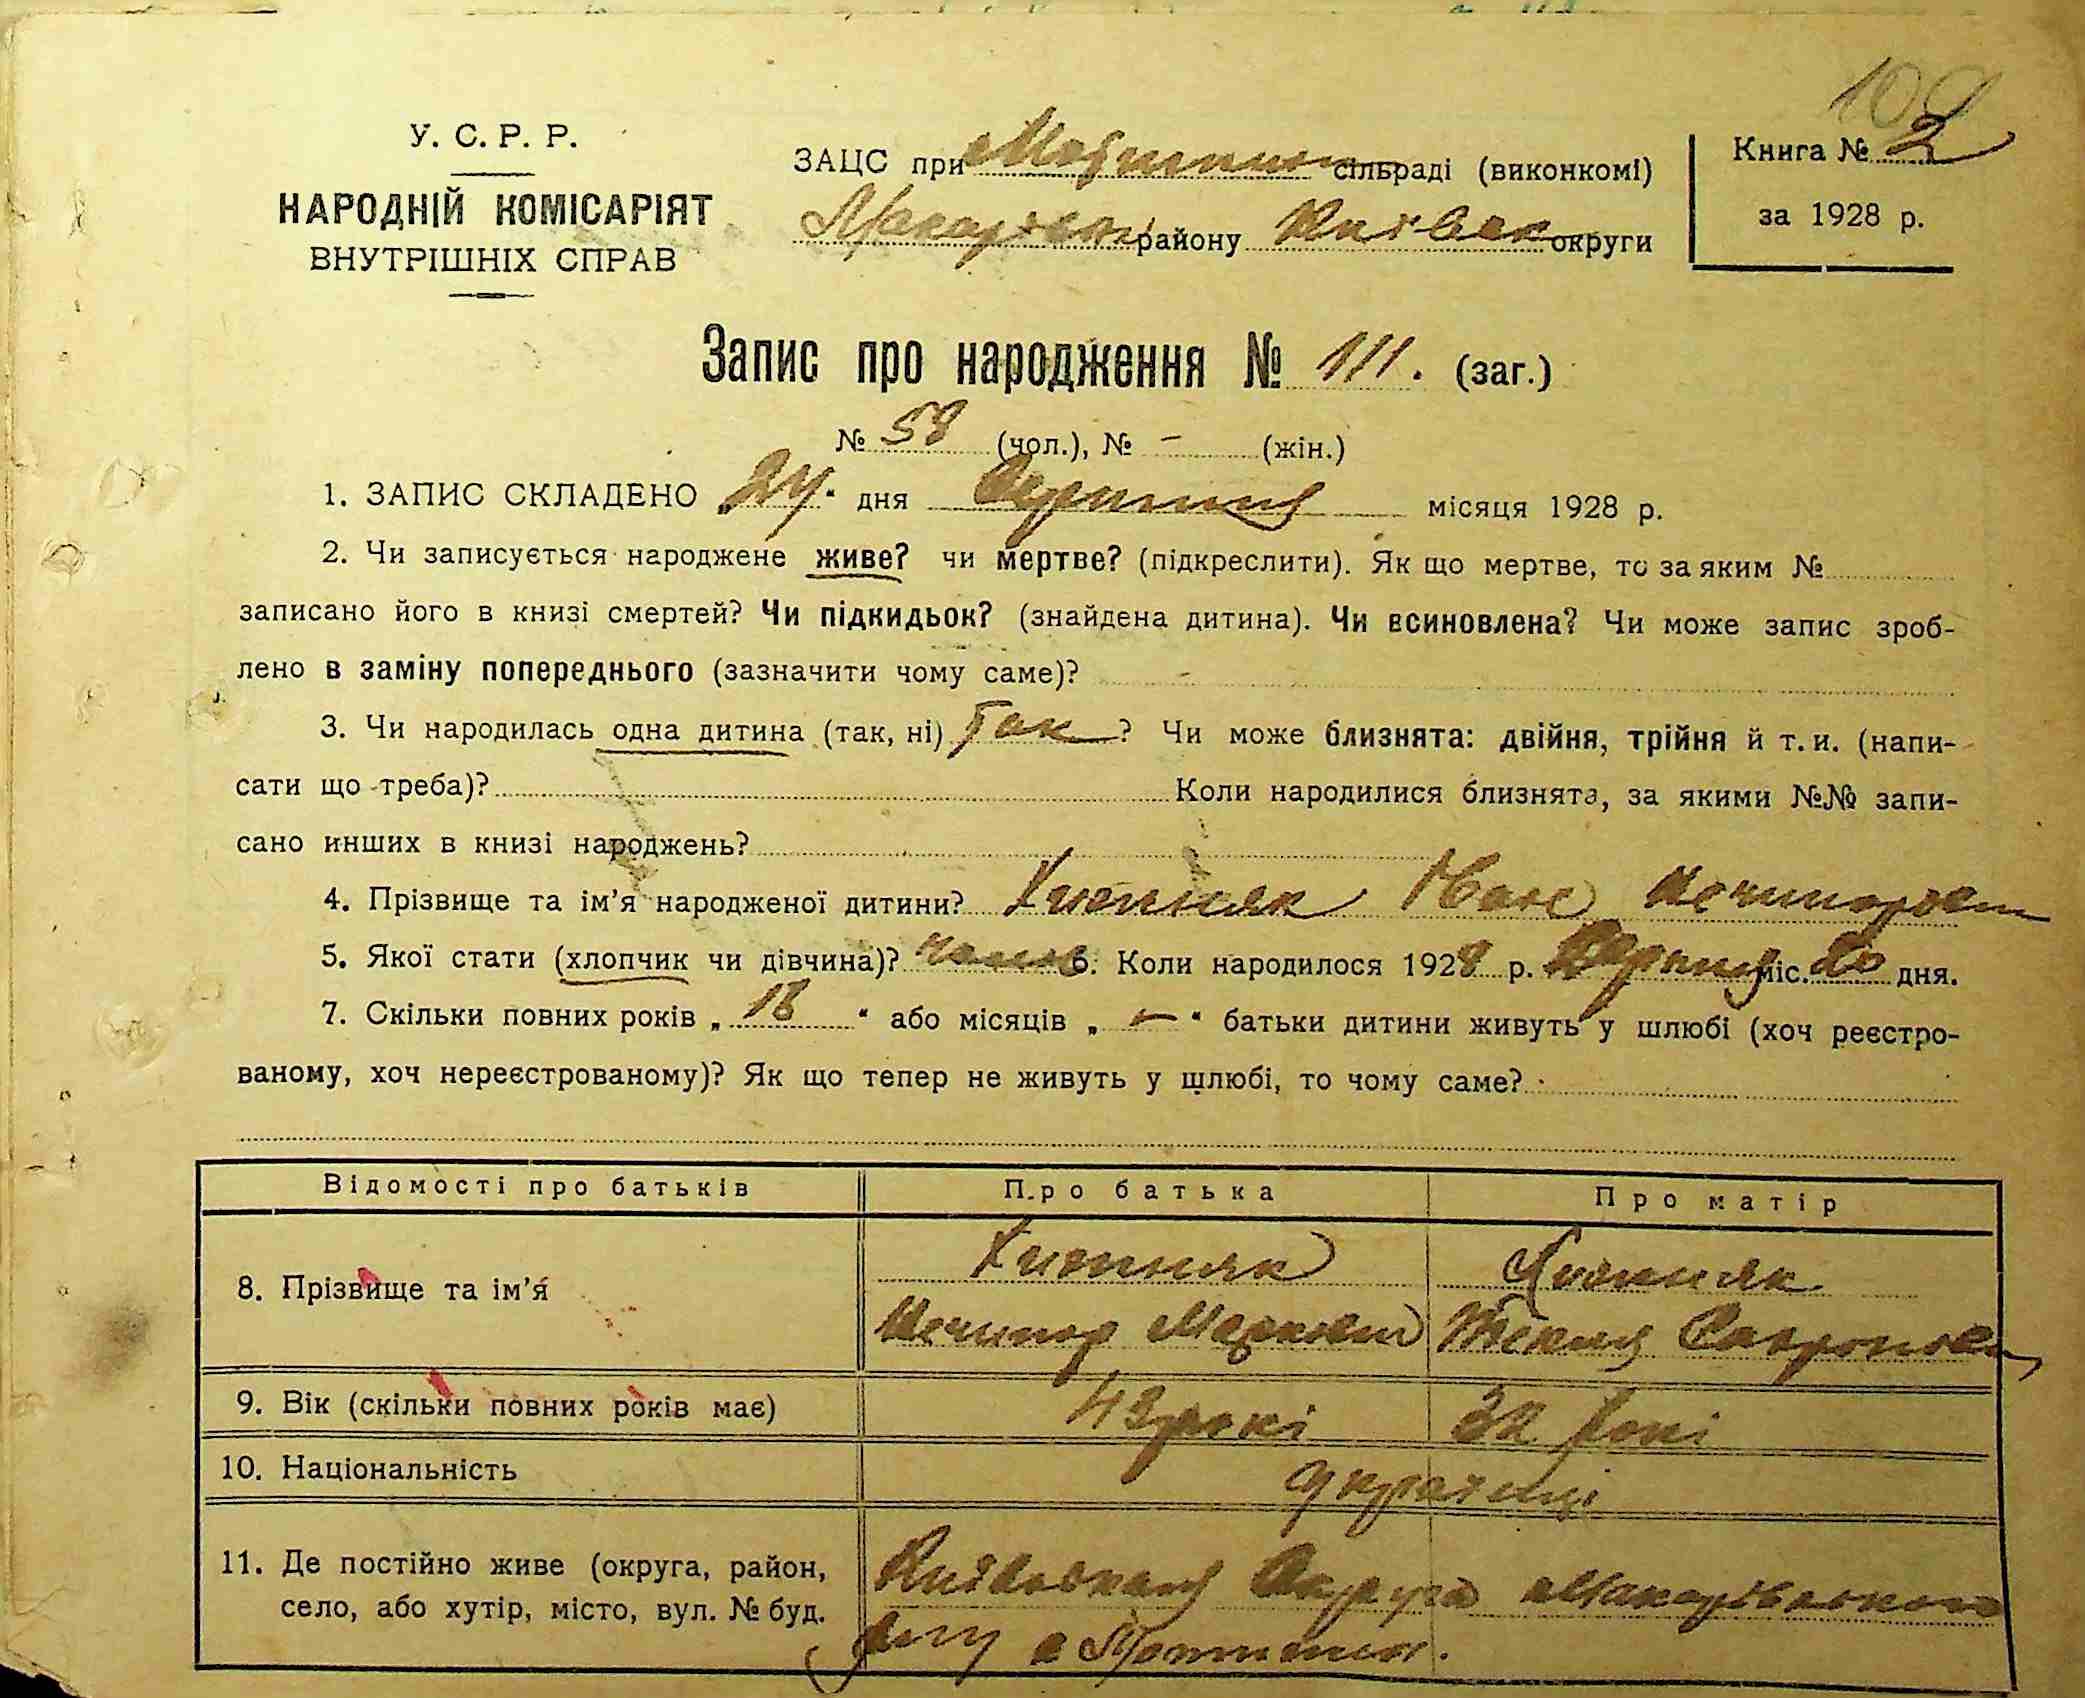 109
У. С. Р. Р.
НАРОДНІЙ КОМІСАРІЯТ
ВНУТРІШНІХ СПРАВ
ЗАЦС при сільраді (виконкомі)
району округи
Книга № 2
за 1928 р.
Запис про народження № 111. (заг.)
№ 58 (чол.), № - (жін.)
1. ЗАПИС СКЛАДЕНО „24" дня Серпня місяця 1928 р.
2. Чи записується народжене живе? чи мертве? (підкреслити). Як що мертве, то за яким №
записано його в книзі смертей? Чи підкидьок? (знайдена дитина). Чи всиновлена? Чи може запис зроб-
лено в заміну попереднього (зазначити чому саме)? -
3. Чи народилась одна дитина (так, ні) Так? Чи може близнята: двійня, трійня й т. и. (напи-
сати що треба)? Коли народилися близнята, за якими №№ запи-
сано инших в книзі народжень?
4. Прізвище та ім'я народженої дитини? Іван
5. Якої стати (хлопчик чи дівчина)? 6. Коли народилося 1928 р. Серпня міс. 20 дня.
7. Скільки повних років „18" або місяців „-" батьки дитини живуть у шлюбі (хоч реєстро-
ваному, хоч нереєстрованому)? Як що тепер не живуть у шлюбі, то чому саме?
Відомості про батьків Про батька Про матір
8. Прізвище та ім'я
Нечипор Маркович
9. Вік (скільки повних років має) 43 рокі рокі
10. Національність українці
11. Де постійно живе (округа, район,
село, або хутір, місто, вул. № буд.
Округа Макарівського